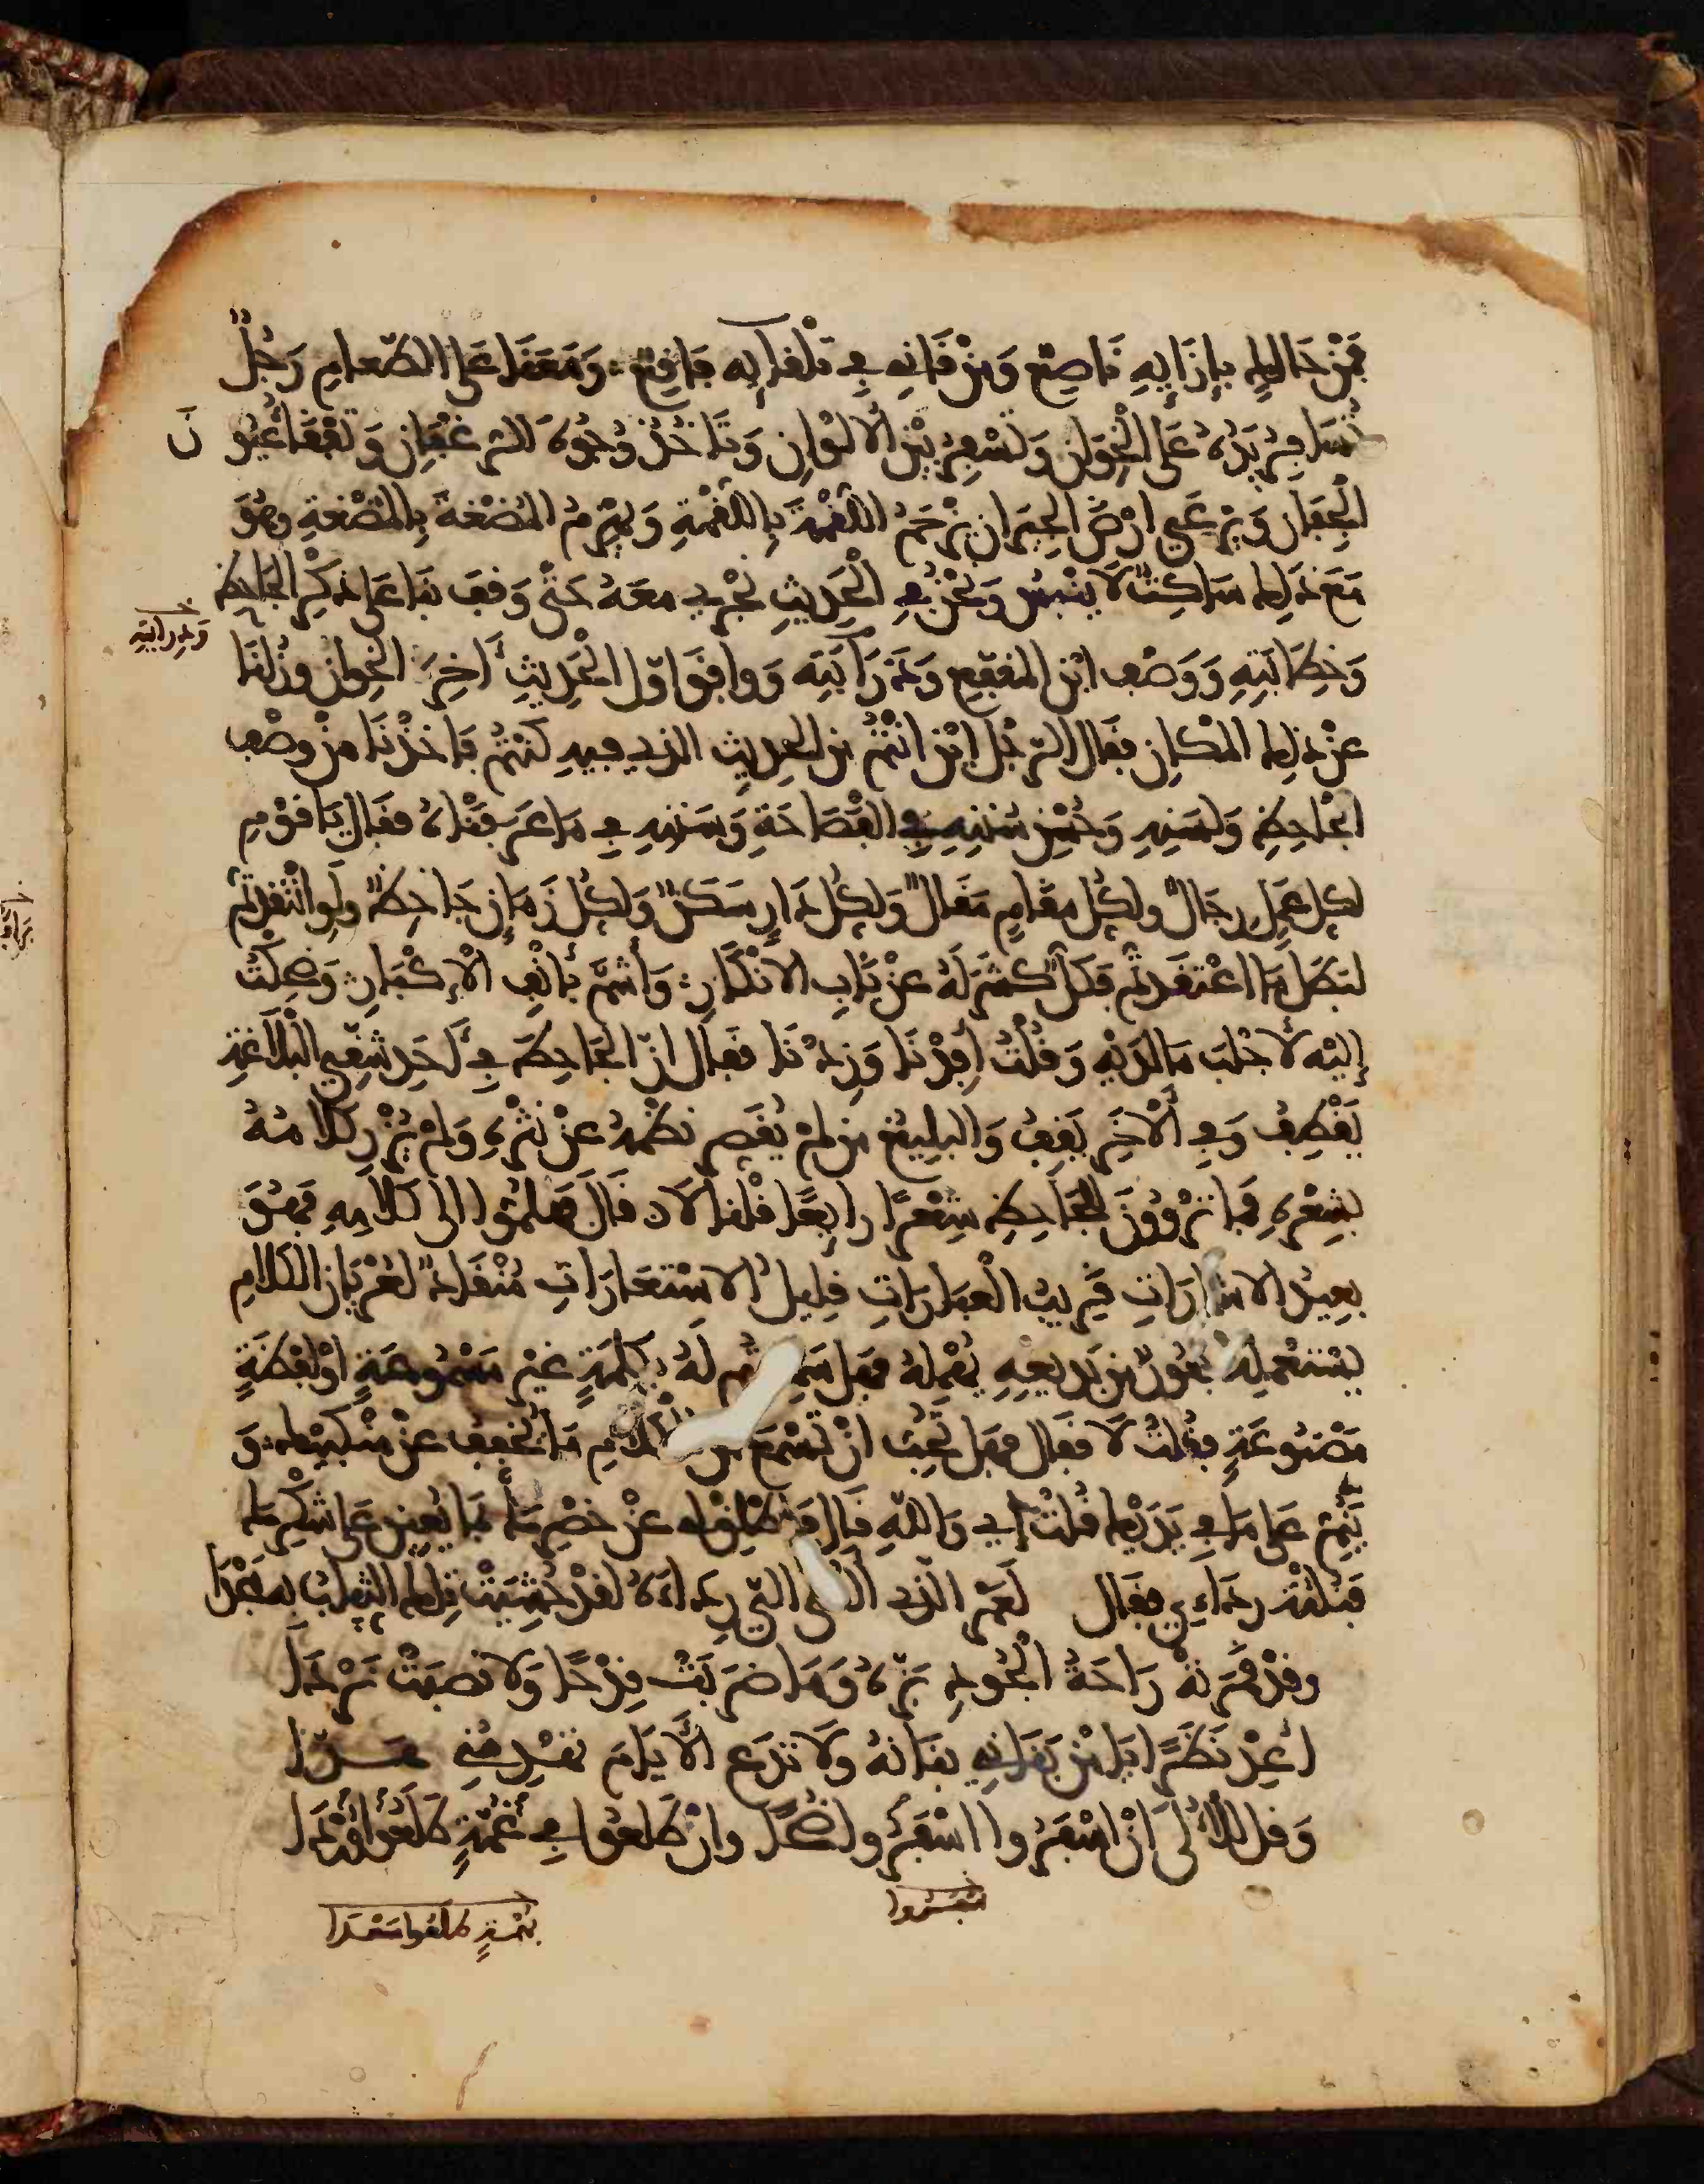 فَمِنْ حَالِكٍ بِإِزَائِهِ نَاصِعٌ وَمِنْ قَانٍ فِي تلقائِهِ فاقعٌ وَمَعَنَا عَلَى الطّعامِ رَجُلٌ
تُسَافِرُ يَدُهُ عَلَى الْخِوَانِ وَتَسْفِرُ بَيْنَ الْأَلْوَانِ وَتَأْخُذُ وُجُوهَ الرُّغْفَانِ وَتَفْقَأُ عُيُونَ
الْجِفَانِ وَيَرْعَى أَرْضَ الْجِيرَانِ يَزْحَمُ اللُّقْمَةَ بِاللُّقْمَةِ وَيَهْزِمُ الْمُضْغَةَ بِالْمُضْغَةِ وهُوَ
مَعَ ذَلِكَ سَاكِتٌ لَا يَنْبِسُ وَنَحْنُ فِي الْحَدِيثِ نَجْرِي معَهُ حَتَّى وَقَفَ بِنَا عَلَى ذِكْرِ الْجَاحِظِ
وَدِرَايَتِهِ
وَخِطَابَتِهِ وَوَصْفِ ابْنِ الْمُقَفَّعِ وَذَرَابَتِهِ وَوافَقَ أَوَّلُ الْحَدِيثِ آخِرَ الْخِوانِ وَزُلْنَا
عَنْ ذَلِكَ الْمَكَانِ فَقَالَ الرَّجُلُ أَيْنَ أَنْتُمْ مِنَ الْحَدِيثِ الَّذِي فِيهِ كُنْتُمْ فَأَخَذْنَا مِنْ وَصْفِ
الْجَاحِظِ وَلَسَنِهِ وَحُسْنِ سَنَنِهِ فِي الْفَصَاحَةِ وَسُنَنِهِ فِي مَا عَرَفْنَاهُ فَقَالَ يَا قَوْمِ
لِكُلِّ عَمَلٍ رِجَالٌ وَلِكُلِّ مَقَامٍ مَقَالٌ وَلِكُلِّ دَارٍ سَكَنٌ وَلِكُلِّ زَمَانٍ جَاحِظٌ وَلَوِ انْتَقَدْتُمْ
لَبَطَلَ مَا اعْتَقَدْتُمْ فَكُلٌّ كَشَرَ لَهُ عَنْ نَابِ الْإِنْكَارِ وَأَشَمَّ بِأَنْفِ الْإِكْبَارِ وَضَحِكْتُ
إِلَيْهِ لِأَجْلُبَ مَا لَدَيْهِ وَقُلْتُ أَفِدْنَا وَزِدْنَا فَقَالَ إِنَّ الْجَاحِظَ فِي أَحَدِ شِقَّيِ الْبَلَاغَةِ
يَقْطِفُ وَفِي الْآخَرِ يَقِفُ وَالْبَلِيغُ مَنْ لَمْ يُقَصِّرْ نَظْمُهُ عَنْ نَثْرِهِ وَلَمْ يُزْرِ كَلَامُهُ
بِشِعْرِهِ فَهَا تَرْوُونَ لِلْجَاحِظِ شِعْرًا رَائِعًا قُلْنَا لَا قَالَ فَهَلُمُّوا إِلَى كَلَامِهِ فَهُوَ
بَعِيدُ الْإِشَارَاتِ قَرِيبُ الْعِبَارَاتِ قَلِيلُ الْاِسْتِعَارَاتِ مُنْقَادٌ لِعُرْيَانِ الْكَلَامِ
يَسْتَعْمِلُهُ نَفُورٌ مِنْ بَدِيعِهِ يُهْمِلُهُ فَهَلْ سَمِعْتُمْ لَهُ بِكَلِمَةٍ غَيْرِ مَسْمُوعَةٍ أَوْ لَفْظَةٍ
مَصْنُوعَةٍ فَقُلْتُ لَا فَقَالَ فَهَلْ تُحِبُّ أَنْ تَسْمَعَ مِنَ الْكَلَامِ مَا يُخَفِّفُ عَنْ مَنْكِبَيْكَ وَ
يَنُمُّ عَلَى مَا فِي يَدَيْكَ قُلْتُ إِي وَاللَّهِ قَالَ فَأَطْلِقْ لِي عَنْ خَصْرِكَ بِمَا يُعِينُ عَلَى شُكْرِكَ
فَنُلْتُهُ رِدَاءِي فَقَالَ لَعَمْرُ الَّذِي أَلْقَى إِلَيَّ رِدَاءَهُ لَقَدْ حُشِيَتْ تِلْكَ الثِّيَابُ بِهِ مَجْدَا
وَقَدْ قَمَرَتْهُ رَاحَةُ الْجُودِ بَزَّهُ وَمَا ضَرَبَتْ قِدْحًا وَلَا نَصَبَتْ نَرْدَا
أَعِدْ نَظَرًا يَا مَنْ كَسَانِي ثِيَابَهُ وَلَا تَدَعِ الْأَيَّامَ تَهْدِمُنِي هَدَّا
وَقُلْ لِلْأُلَى إِنْ أَسْفَرُوا أَسْفَرُوا ضُحًى وَإِنْ طَلَعُوا فِي غُمَّةٍ طَلَعُوا